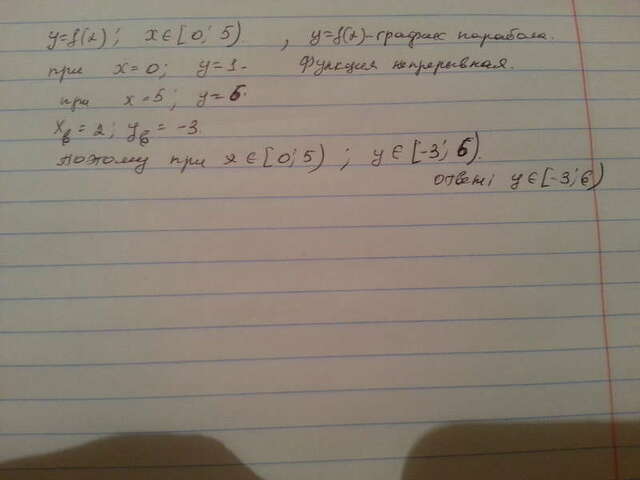 y=f(x); x∈[0; 5). , y=f(x)-график парабола.
при x=0; y=1. Функция непрерывная.
при x=5; y=6.
xв=2; yв=-3.
поэтому при x∈[0; 5); y∈[-3; 6).
ответ: y∈[-3; 6)